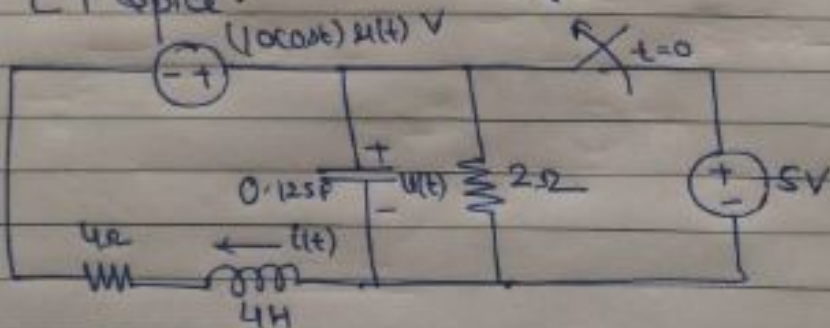 LTspice
(10cost) u(t) V
- +
t=0
+
0.125F
v(t)
2Ω
+
-
5V
-
4Ω
i(t)
4H